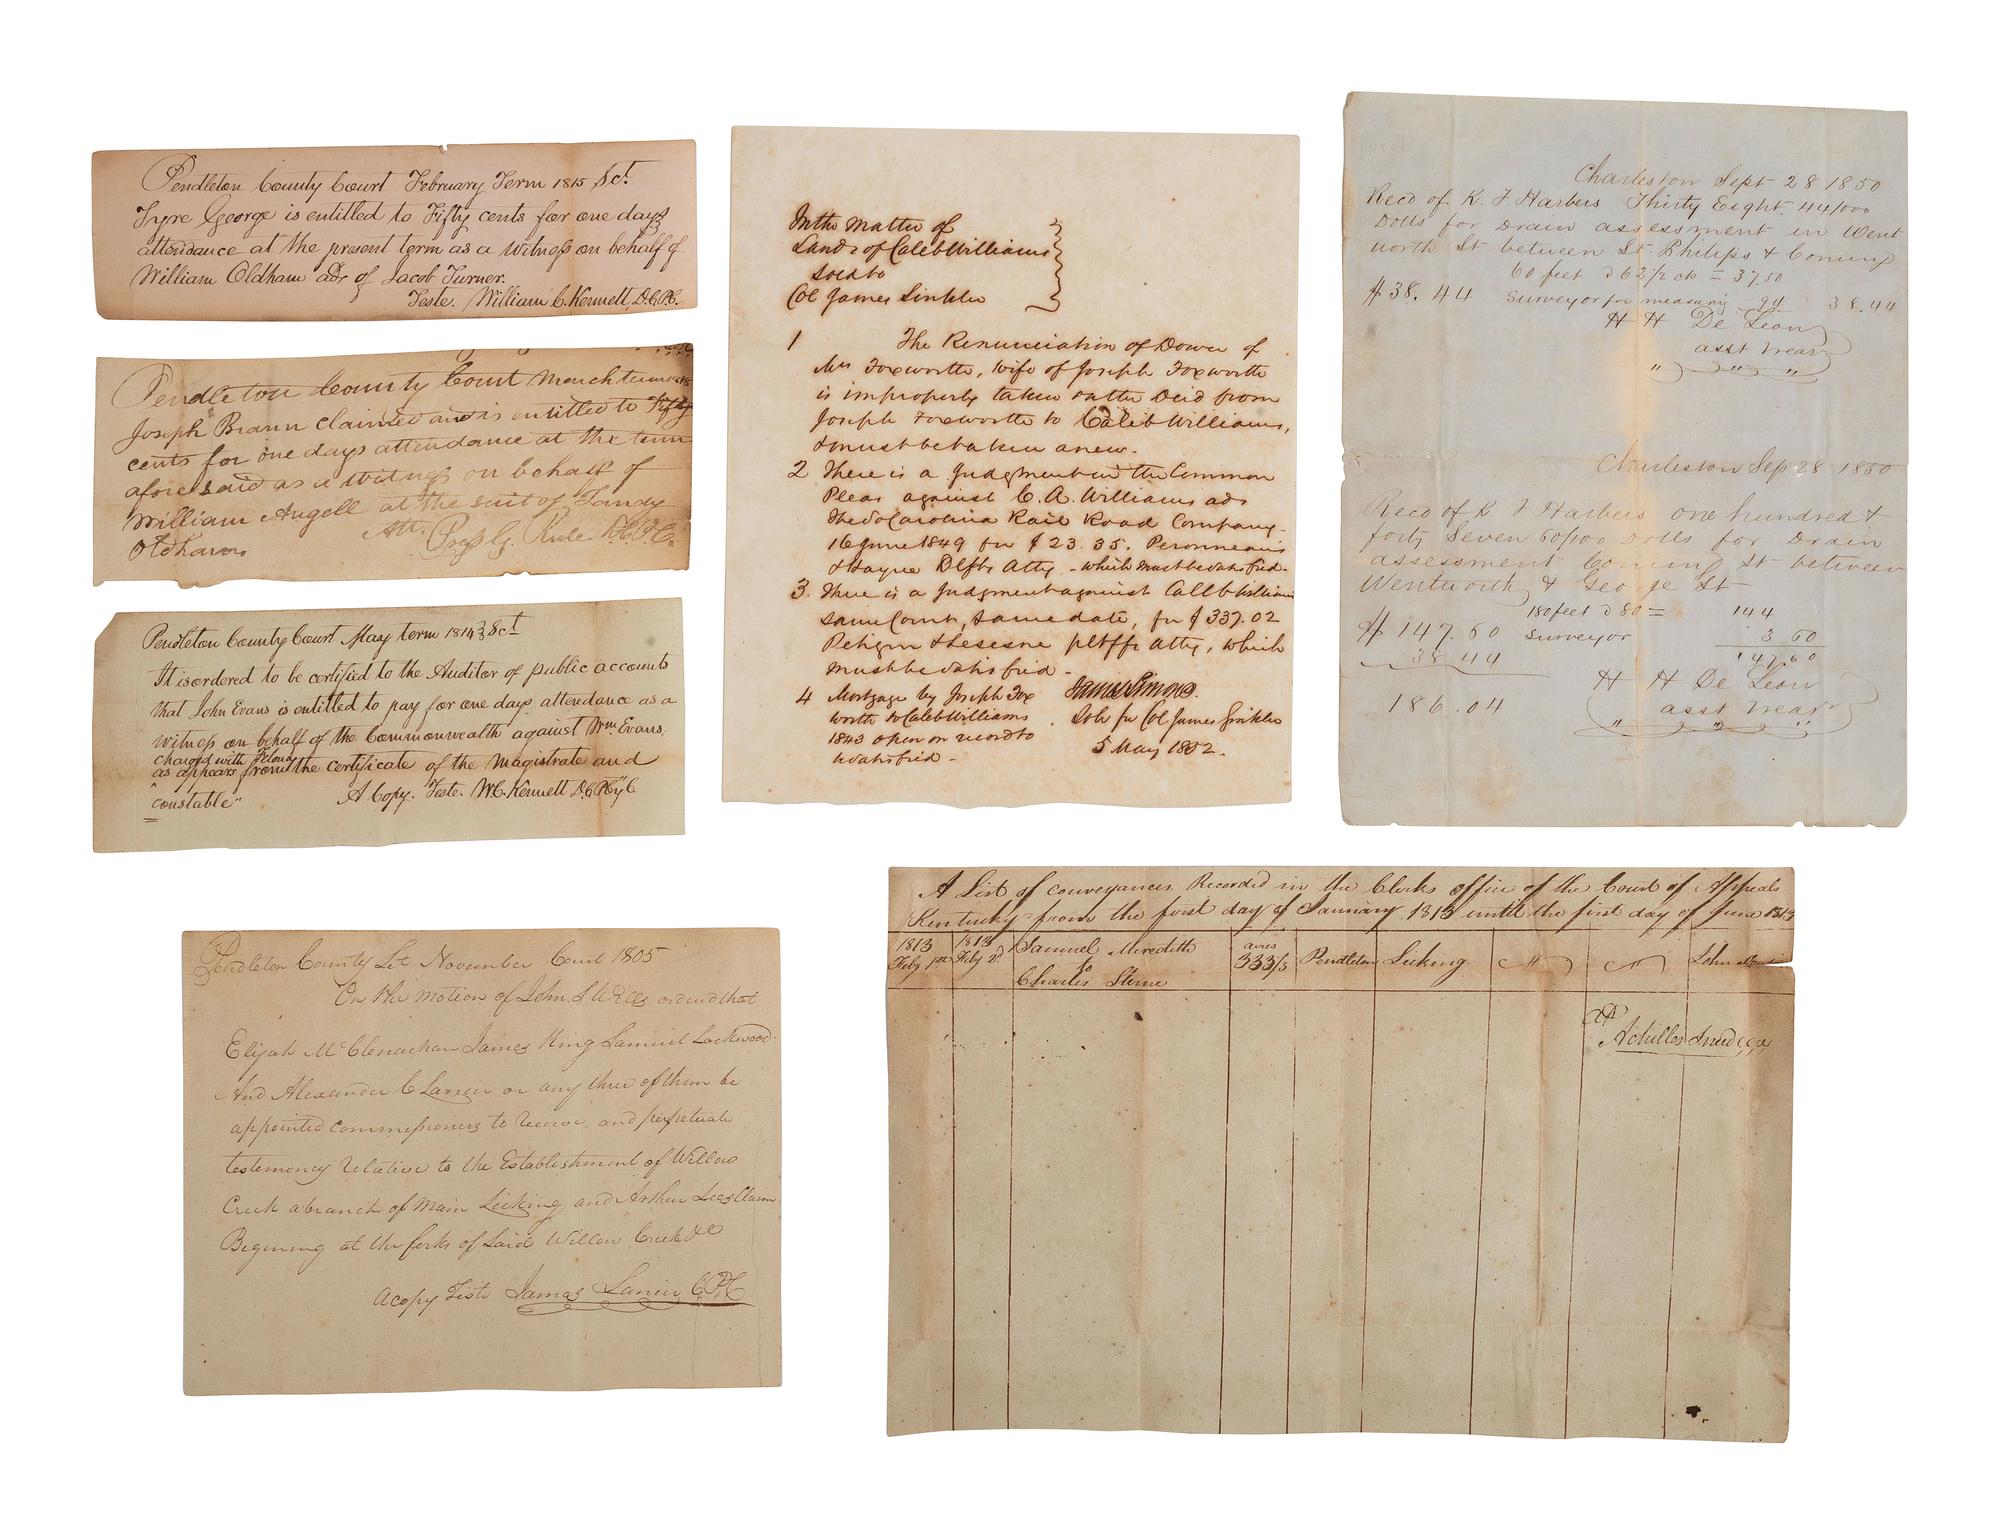 Pendleton County Court February Term 1815 Sct.
Tyre George is entitled to Fifty cents for one days
attendance at the present term as a witness on behalf of
William Oldham ads of Jacob Turner.
Teste. William C. Kennett, D.C.P.C.
Pendleton County Court March term
Joseph Brann claimed and is entitled to Fifty
cents for one days attendance at the term
aforesaid as a witness on behalf of
William Angell at the suit of Tandy
Oldham
Att.
Pendleton County Court May term 1814 Sct
It is ordered to be certified to the Auditor of public accounts
that John Evans is entitled to pay for one days attendance as a
witness on behalf of the Commonwealth against Wm. Evans.
charged with felony
as appears from the certificate of the magistrate and
"constable"
A Copy. Teste. W.C. Kennett D.C.P.Cy C.
In the Matter of
Lands of Caleb Williams
sold to
Col James Sinkler
1 The Renunciation of Dower of
Mrs Foxworth, wife of Joseph Foxworth
is improperly taken on the Deed from
Joseph Foxworth to Caleb Williams,
& must be taken anew.
2 There is a Judgment in the Common
Pleas against C. A. Williams ads
The So Carolina Rail Road Company
16 June 1849 for $23.35. Peronneau
& Hayne Plffs Atty - which must be satisfied -
3. There is a Judgment against Caleb Williams
same Court, same date, for $337.02
Petigru & Lesesne pltffs Atty, which
must be satisfied -
4 Mortgage by Joseph Fox
worth to Caleb Williams
1843 open on record to
be satisfied -
James Simons.
Sol. for Col James Sinkler
5 May 1852.
Charleston Sept 28 1850
Recd of K. F. Harbers Thirty Eight 44/000
Dolls for Drain assessment in Went
worth St between St Philips & Coming
60 feet @ 62 1/2 cts = 37.50
$38.44 Surveyor for measuring 94 38.44
H H De Leon
asst treas
" " "
Charleston Sep 28 1850
Recd of K F Harbers one hundred &
forty Seven 60/100 Dolls for Drain
assessment Coming St between
Wentworth & George St
180 feet @ 80 = 144
$147.60 Surveyor 3 60
38 44 147,60
186.04
H H De Leon
asst treas
" " "
Pendleton County Sct. November Court 1805
On the motion of John S Wills ordered that
Elijah McClenachan James King Samuel Lockwood
And Alexander C Lanier or any three of them be
appointed commissioners to receive and perpetuate
testemoney relative to the Establishment of Willow
Creek a branch of Main Licking and Arthur Lees Claim
Begining at the forks of said Willow Creek &C
A copy Teste James Lanier CPC
A List of conveyances Recorded in the Clerks office of the Court of Appeals
Kentucky from the first day of January 1813 until the first day of June 1813
1813 Feby 1st 1813 Feby 2d. Samuel Meredith to Charles Stone acres 333 1/3 Pendleton Licking John
Achilles Sneed CCA